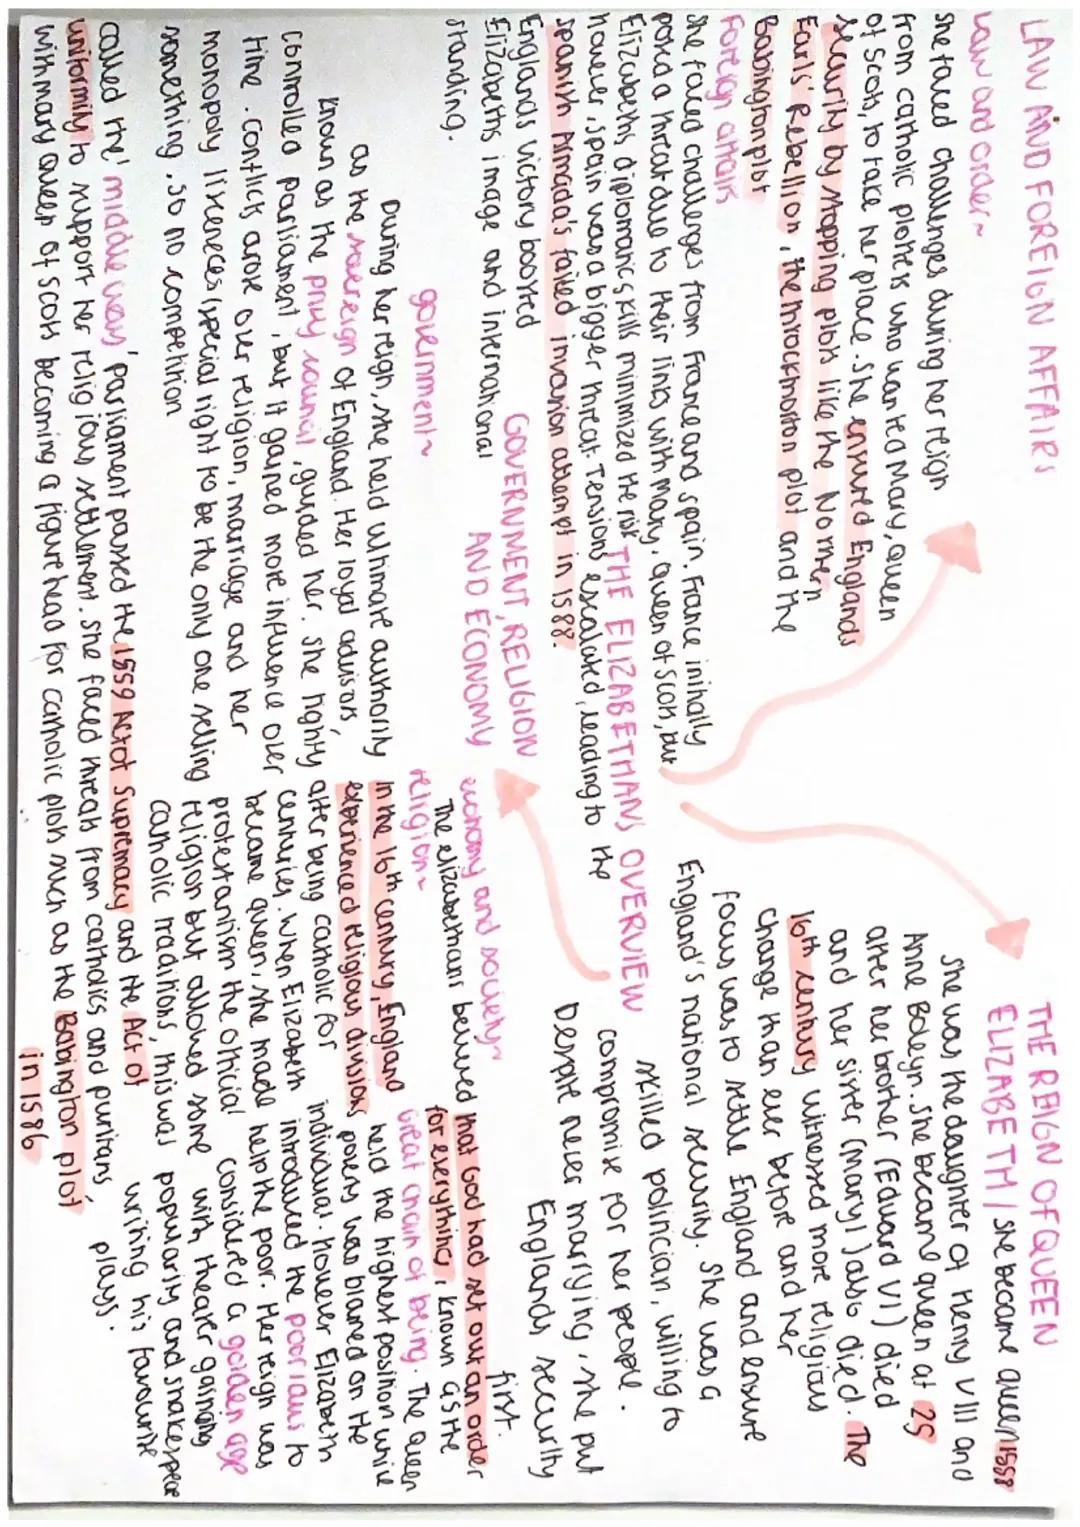 LAW AND FOREIGN AFFAIRS
Law and order~
She faced challenges during her reign
from catholic plotters who wanted Mary, queen
of Scots, to take her place. She ensured Englands
security by stopping plots like the Northern
Earls' Rebellion, the throckmorton plot and the
Babington plot
Foreign affairs
She faced challenges from France and Spain. France initially
posed a threat due to their lines with Mary, Queen of Scots, but
Elizabeths diplomatic skills minimized the risk
however, Spain was a bigger threat. Tensions escalated, leading to the
Spanish Armada's failed invasion attempt in 1588.
Englands victory boosted
Elizabeths image and international
standing.
THE REIGN OF QUEEN
ELIZABETH / she became queen 1558
She was the daughter of Henry VIII and
Anne Boleyn. She became queen at 25
after her brother (Edward VI) died
and her sister (Mary I) also died. The
16th century witnessed more religious
change than ever before and her
focus was to settle England and ensure
England's national security. She was a
skilled politician, willing to
compromise for her people.
Despite never marrying, she put
Englands security
first.
THE ELIZABETHANS OVERVIEW
GOVERNMENT, RELIGION
AND ECONOMY
government~
During her reign, she held ultimate authority
as the sovereign of England. Her loyal advisors,
known as the privy council, guided her. She tightly
controlled parliament, but it gained more influence over
time. Conflicts arose over religion, marriage and her
monopoly liceneces (special right to be the only one selling
something. So no competition
economy and society~
The elizabethans believed that God had set out an order
for everything, known as the
Great chain of being. The Queen
held the highest position while
poverty was blamed on the
individual. however Elizabeth
introduced the poor laws to
help the poor. Her reign was
considered a golden age
with theater gaining
popularity and shakespear
writing his favourite
plays.
religion~
In the 16th century, England
experienced religious divisions
after being catholic for
centuries. When Elizabeth
became queen, she made
protestantism the official
religion but allowed some
catholic traditions, this was
called the 'middle way', parliament passed the 1559 Act of Supremacy and the Act of
uniformity to support her religious settlement. She faced threats from catholics and puritans,
with mary queen of scots becoming a figurehead for catholic plots such as the Babington plot
in 1586